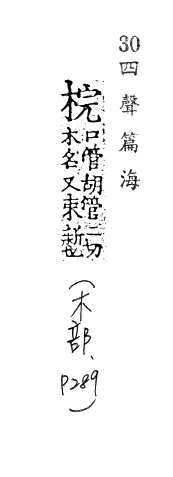 30四聲篇海
梡
口管胡管二切
木名又束薪也
(木部、P289)